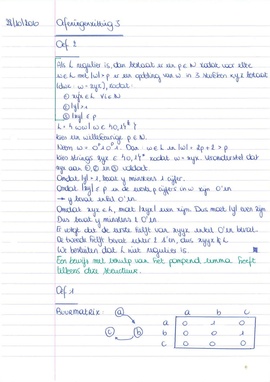 21/10/2010 Oefeningenzitting 3
Oef 2
Als L regulier is, dan bestaat er een p ∈ N zodat voor elke
w ∈ L met |w| ≥ p er een opdeling van w in 3 stukken xyz bestaat
(dwz: w = xyz), zodat:
① xyⁱz ∈ L ∀i ∈ N
② |y| ≥ 1
③ |xy| ≤ p
L = { ww | w ∈ {0,1}* }
Kies een willekeurige p ∈ N.
Neem w = 0ᵖ10ᵖ1. Dan w ∈ L en |w| = 2p + 2 > p
Kies strings xyz ∈ {0,1}* zodat w = xyz. Veronderstel dat
xyz aan ①, ② en ③ voldoet.
Omdat |y| ≥ 1, bevat y minstens 1 cijfer.
Omdat |xy| ≤ p en de eerste p cijfers in w zijn 0'en
→ y bevat enkel 0'en.
Omdat xyyz ∈ L, moet |xyyz| even zijn. Dus moet |y| even zijn.
Dus bevat y minstens 2 0'en
Er volgt dat de eerste helft van xyyz enkel 0'en bevat.
De tweede helft bevat echter 2 1'en, dus xyyz ∉ L
We besluiten dat L niet regulier is.
Een bewijs met behulp van het pompend lemma heeft
telkens deze structuur.
Oef. 1
Buurmatrix: a b c
a b c
a 0 1 0
b 0 0 1
c 0 0 0